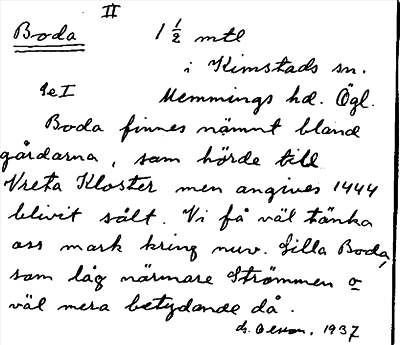 II
Boda 1 1/2 mtl
i Kimstads sn.
Se I Memmings hd. Ögl.
Boda finnes nämnt bland
gårdarna, som hörde till
Vreta Kloster men angives 1444
blivit sålt. Vi få väl tänka
oss mark kring nuv. Lilla Boda,
som låg närmare Strömmen o
väl mera betydande då.
1937